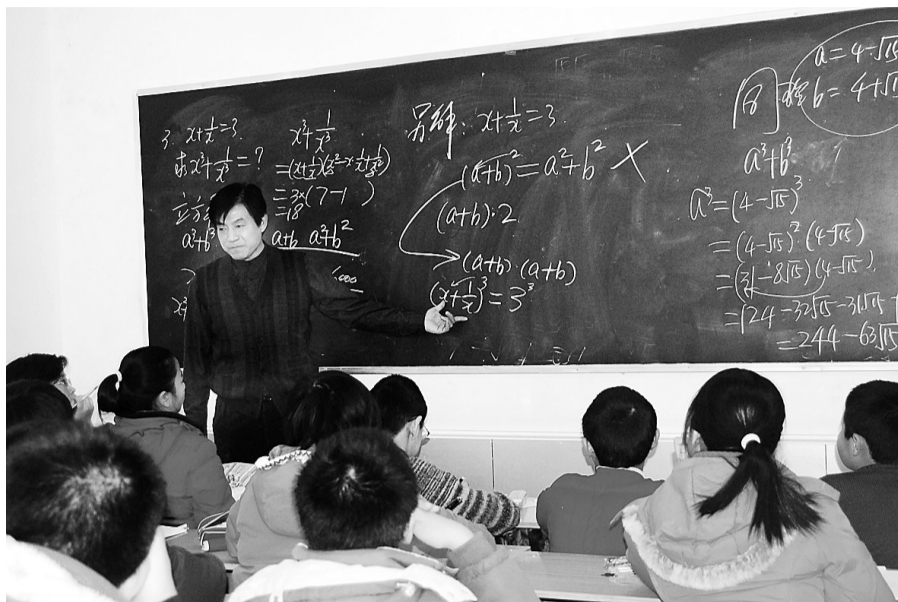 3. x+1/x=3.
求x³+1/x³=?
立方
a³+b³
x³
x³+1/x³
=(x+1/x)(x²-x·1/x+1/x²)
=3×(7-1)
=18
a+b a²+b²
另解: x+1/x=3.
(a+b)²=a²+b² ×
(a+b)·2
(a+b)·(a+b)
(x+1/x)³=3³
a=4-√15
b=4+√15
a³+b³
a³=(4-√15)³
=(4-√15)²(4-√15)
=(31-8√15)(4-√15)
=124-32√15-31√15+
=244-63√15